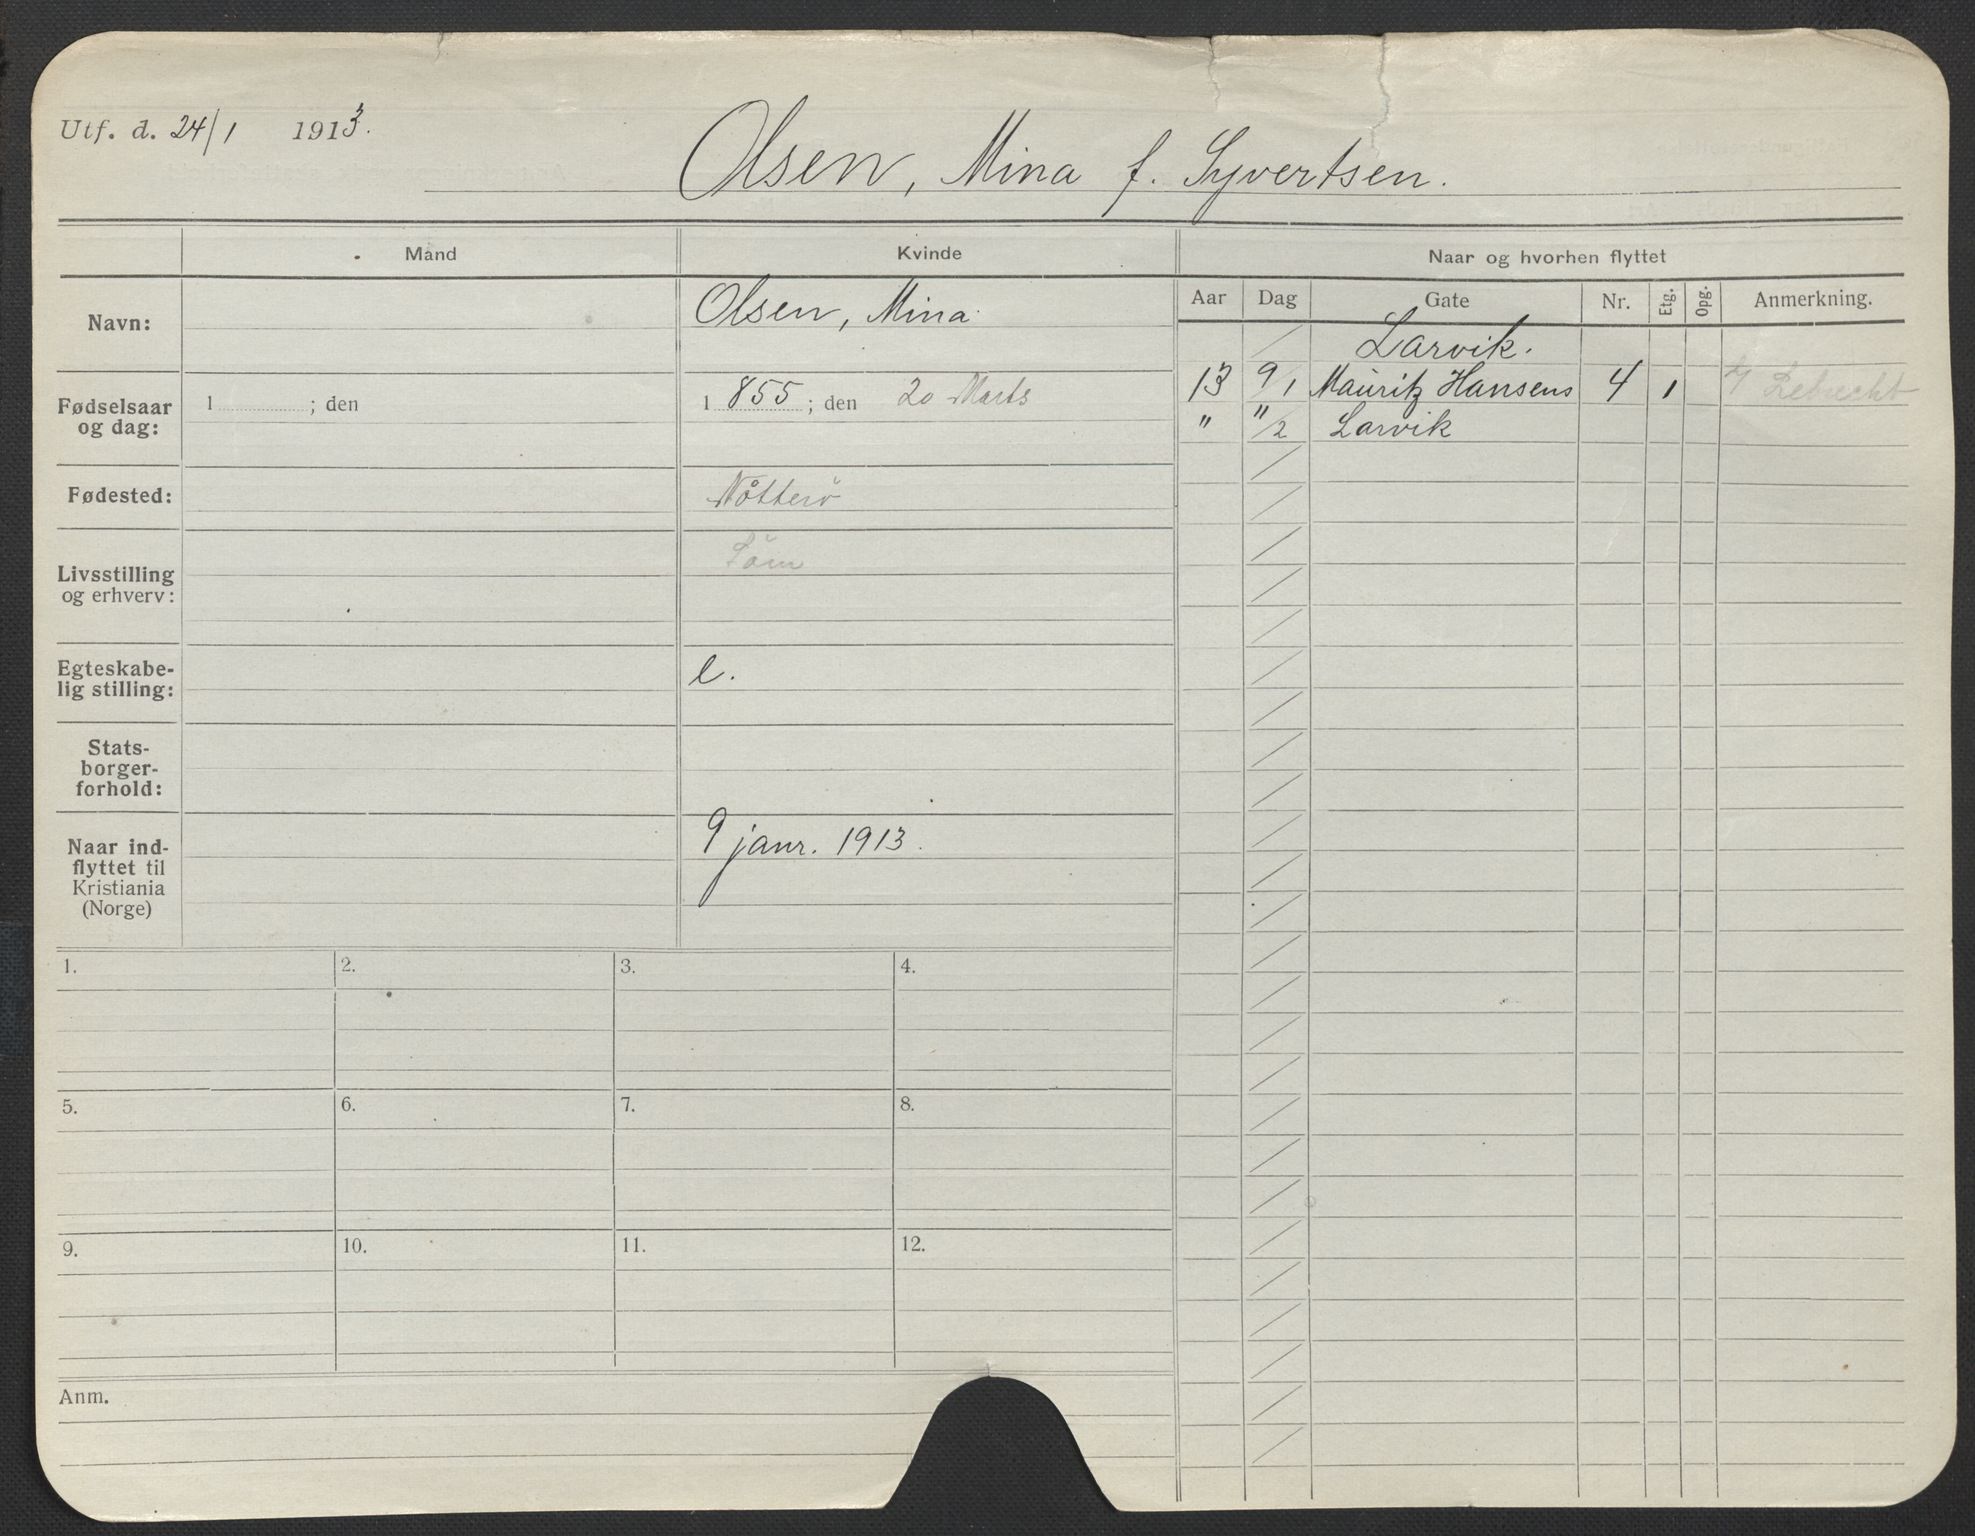 Utf. d. 24/1 1913.
Olsen, Mina f. Syvertsen.
Mand
Kvinde
Naar og hvorhen flyttet
Navn:
Olsen, Mina
Fødselsaar og dag:
1 ; den
1 855 ; den 20 Marts
Fødested:
Nötterö
Livsstilling og erhverv:
Egteskabe-
lig stilling:
e.
Stats-
borger-
forhold:
Naar ind-
flyttet til
Kristiania
(Norge)
9 janr. 1913.
Aar Dag Gate Nr. Etg. Opg. Anmerkning.
Larvik.
13 9/1 Mauritz Hansens 4 1
" "/2 Larvik
1. 2. 3. 4.
5. 6. 7. 8.
9. 10. 11. 12.
Anm.